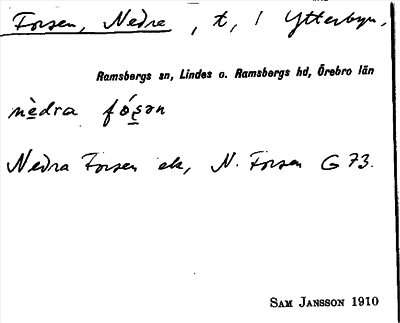 Forsen, Nedre, t, i Ytterbyn,
Ramsbergs sn, Lindes o. Ramsbergs hd, Örebro län
nèdra fóʂən
Nedra Forsen ek, N. Forsen G 73.
SAM JANSSON 1910